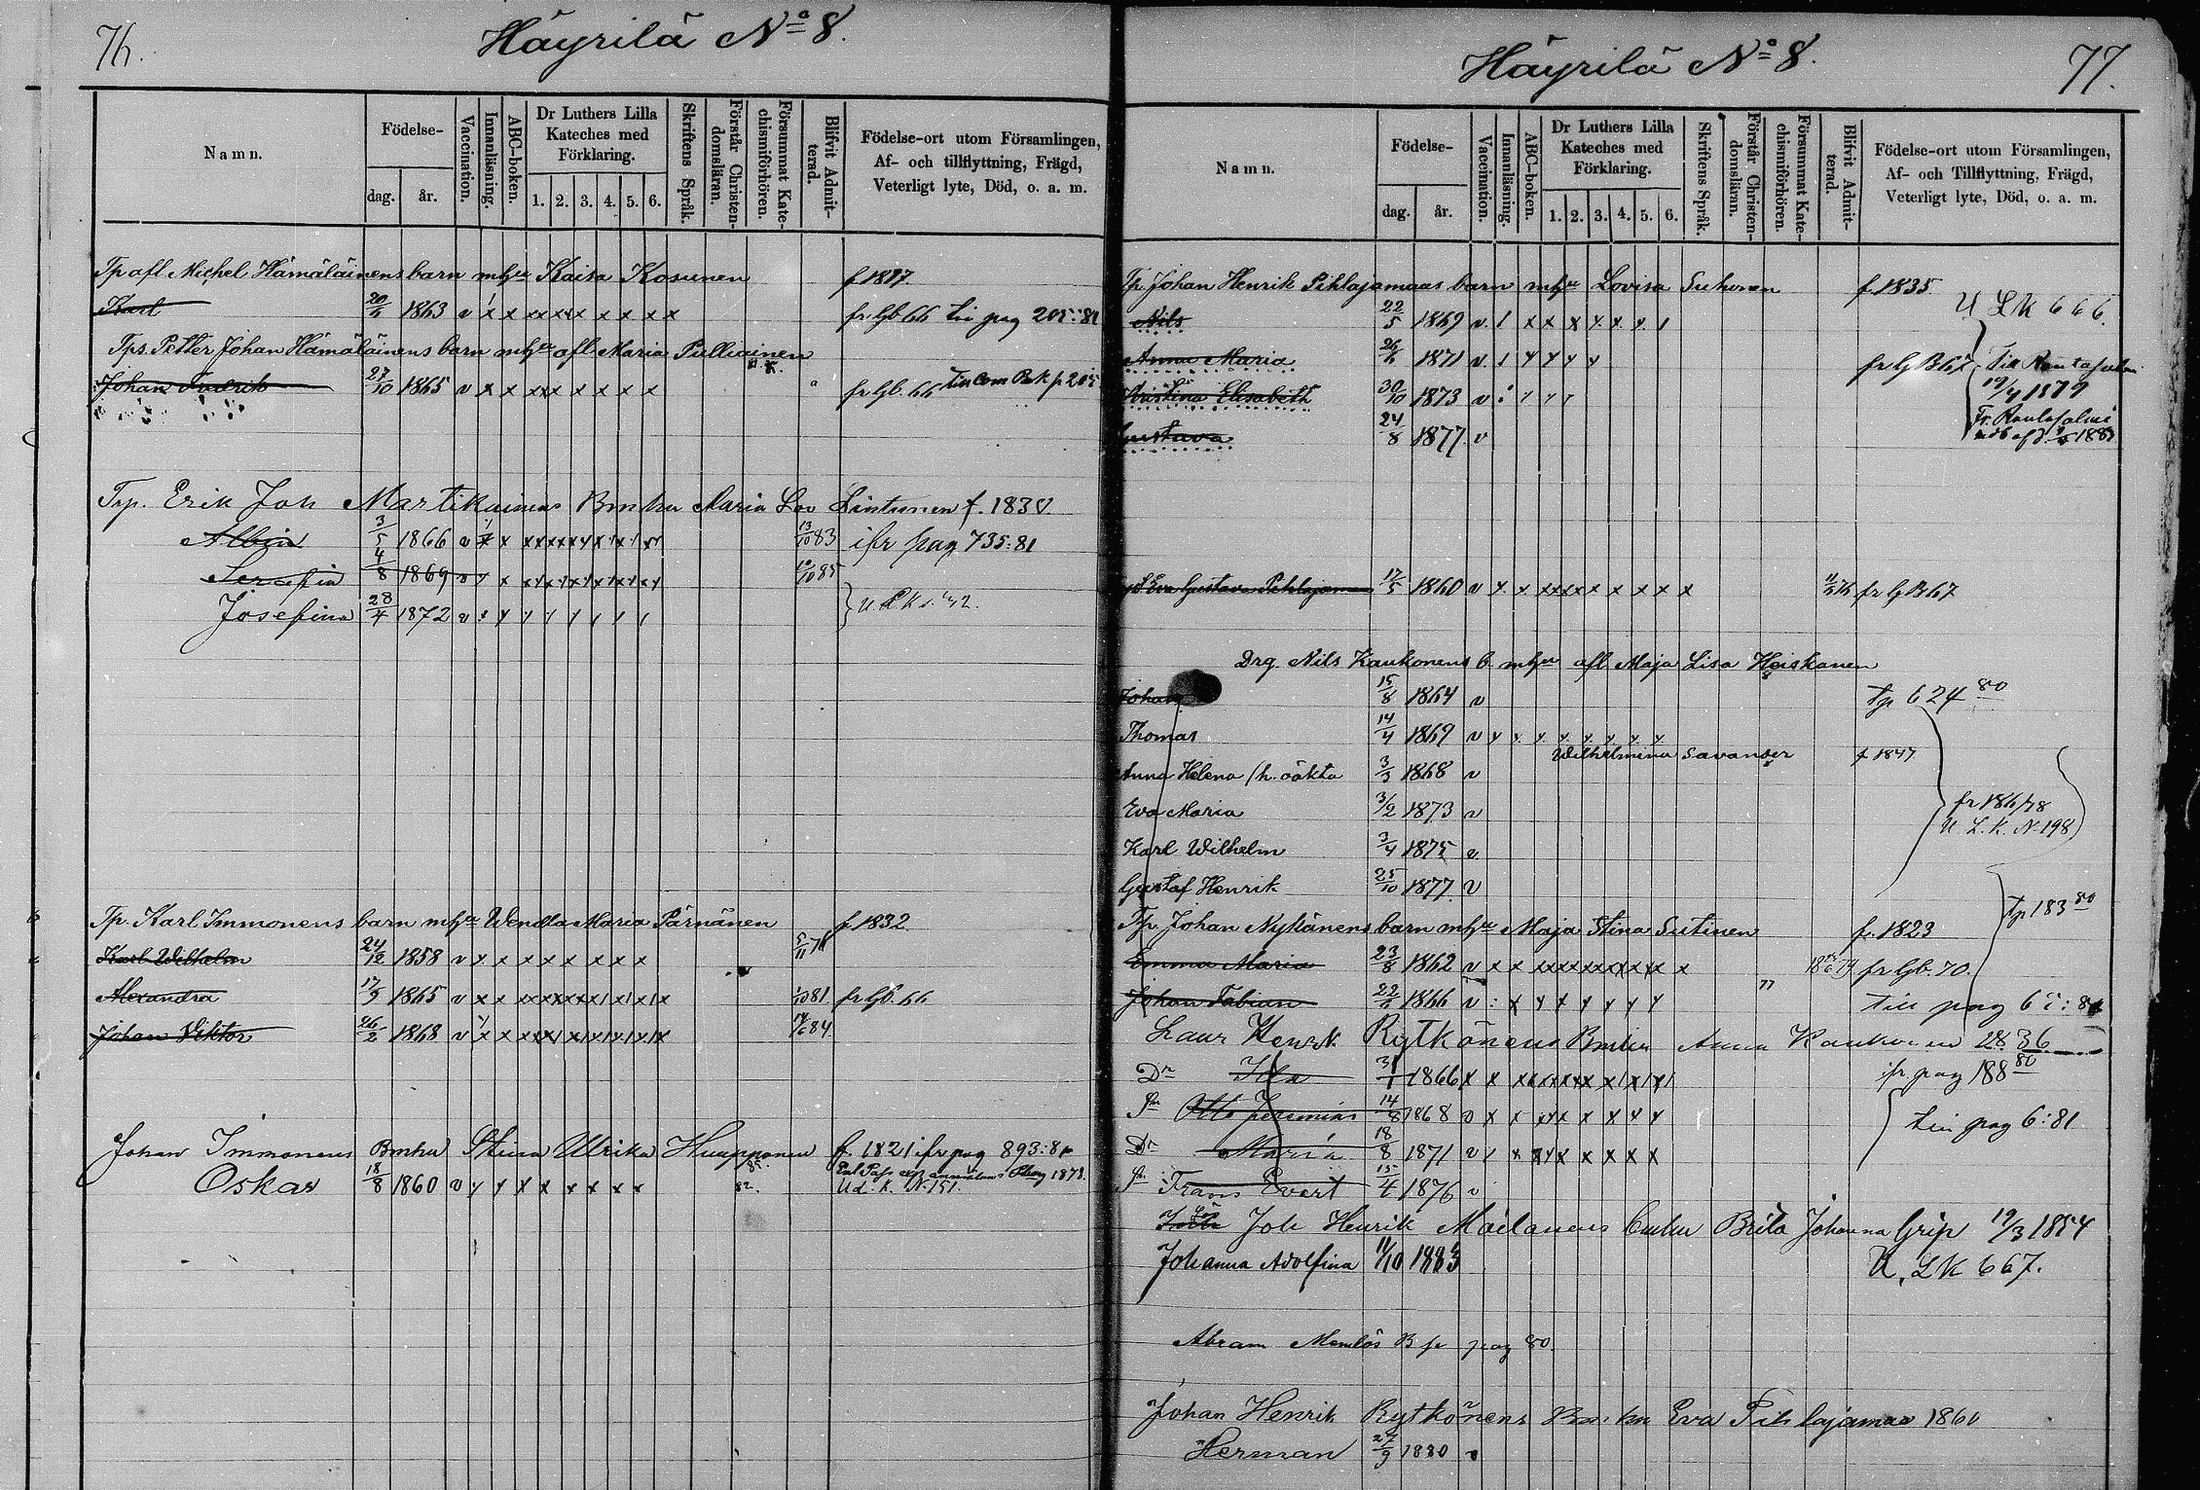 76.
Häyrilä No 8.
Namn.
Födelse-
dag. år.
Vaccination.
Innanläsning.
ABC-boken.
Dr Luthers Lilla Kateches med Förklaring.
1. 2. 3. 4. 5. 6.
Skriftens Språk.
Förstår Christendomsläran.
Försummat Katechismiförhören.
Blifvit Admitterad.
Födelse-ort utom Församlingen, Af- och tillflyttning, Frägd, Veterligt lyte, Död, o. a. m.
Tp afl Michel Hämäläinens barn mhu Kaisa Kosunen f 1817.
Karl 20/6 1863 v x x x x x x x x x x fr. Gb. 66 till pag 205:81
Tps. Petter Johan Hämäläinens barn mhu afl. Maria Pulliainen
Johan Fredrik 27/10 1865 v x x x x x x x x x fr. Gb. 66
Trp. Erik Joh Martikainens Bmhu Maria Lov Lintunen f. 1830
Albin 3/5 1866 v x x x x x x x x x 13/10 83 ifr pag 735:81
Serafin 4/8 1869 v 10/10 85
Josefina 28/4 1872 v
Tp. Karl Immonens barn mhu Wendla Maria Pärnänen f 1832.
Karl Wilhelm 24/12 1858 v x x x x x x x x 5/11 78
Alexandra 17/9 1865 v x x x x x x x x x 1/10 81. fr Gb. 66
Johan Viktor 26/2 1868 v x x x x x x x x 14/6 84.
Johan Immonens Bmhu Stina Ulrika Huupponen f. 1821 ifr pag 893:81
Oskar 18/8 1860 v x x x x x x x x 82. Ud. K. N. 151.
77.
Häyrilä No 8.
Namn.
Födelse-
dag. år.
Vaccination.
Innanläsning.
ABC-boken.
Dr Luthers Lilla Kateches med Förklaring.
1. 2. 3. 4. 5. 6.
Skriftens Språk.
Förstår Christendomsläran.
Försummat Katechismiförhören.
Blifvit Admitterad.
Födelse-ort utom Församlingen, Af- och Tillflyttning, Frägd, Veterligt lyte, Död, o. a. m.
Tp. Johan Henrik Pihlajamaas barn mhu Lovisa Suhonen f 1835
U LK 666.
Nils 22/5 1869 v. x x x
Anna Maria 26/6 1871 v. fr G B 67
Kristina Elisabeth 30/10 1873 v 19/4 1879
Gustava 24/8 1877 v
Eva Gustava Pihlajamaa 17/5 1860 v x x x x x x x x x 11/6 76 fr G B 67
Drg. Nils Kaukonens b. mhu afl Maja Lisa Heiskanen
Johan 15/8 1864 v tp 624 80
Thomas 14/4 1869 v
Wilhelmina Savander f 1847
Anna Helena /h. oäkta 3/3 1868 v
Eva Maria 3/2 1873 v fr 186/78
U L. K. N. 198
Karl Wilhelm 3/4 1875 v
Gustaf Henrik 25/10 1877 v
tp 183 80
Tp. Johan Nykänens barn mhu Maja Stina Sutinen f. 1823
Emma Maria 23/8 1862 v x x x x x x x x x fr Gb. 70.
Johan Fabian 22/6 1866 v x x x x x x till pag
Laur Henrik Rytkönens Bmhu Anna Kaukonen 1836
Dr Ida 3/1 1866 x x x x x x x x ifr pag 188 80
Sn Otto Jeremias 14/8 1868 v x x x x x x x x till pag 6:81
Dr Maria 18/8 1871 v x x x x x x x x
Sn Frans Evert 15/4 1876 v
Joh Henrik Mailanens bmhu Brita Johanna Grip 19/3 1854
Johanna Adolfina 11/10 1883 U. LK 667.
Abram Memlös B fr pag 80.
Johan Henrik Rytkönens Bmhu Eva Pihlajamaa 1860
Herman 27/9 1880 v